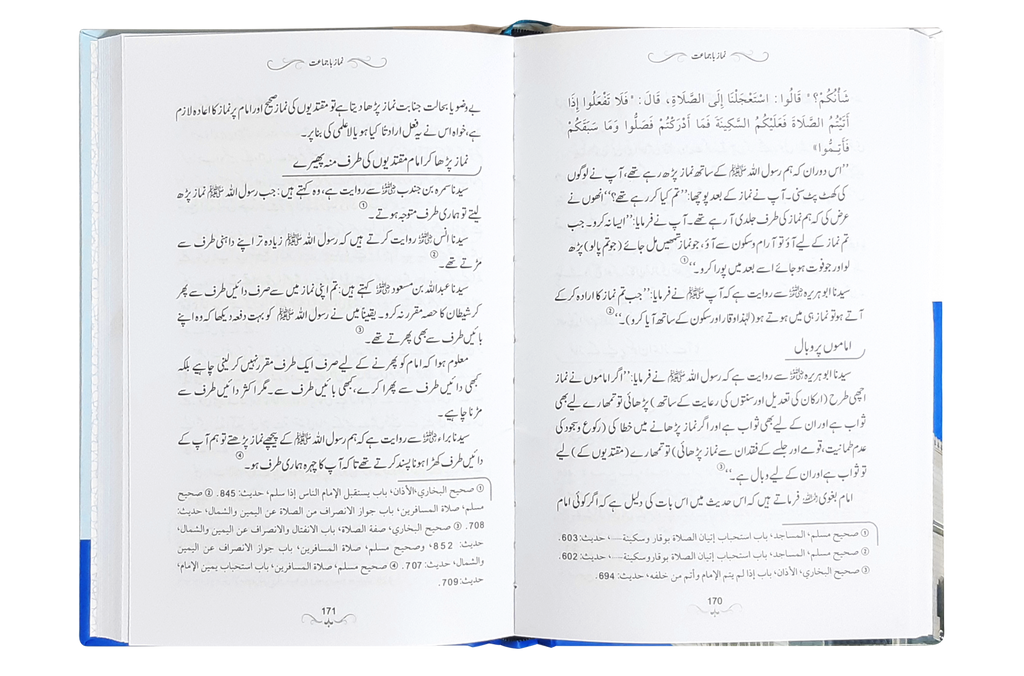 نماز باجماعت
شَأْنُكُمْ؟» قَالُوا: اسْتَعْجَلْنَا إِلَى الصَّلَاةِ، قَالَ: «فَلَا تَفْعَلُوا إِذَا
أَتَيْتُمُ الصَّلَاةَ فَعَلَيْكُمُ السَّكِينَةَ فَمَا أَدْرَكْتُمْ فَصَلُّوا وَمَا سَبَقَكُمْ
فَأَتِمُّوا»
’’اس دوران کہ ہم رسول اللہ ﷺ کے ساتھ نماز پڑھ رہے تھے، آپ نے لوگوں
کی کھٹ پٹ سنی۔ آپ نے نماز کے بعد پوچھا: ’’تم کیا کر رہے تھے؟‘‘ انھوں نے
عرض کی کہ ہم نماز کی طرف جلدی آ رہے تھے۔ آپ نے فرمایا: ’’ایسا نہ کرو۔ جب
تم نماز کے لیے آؤ تو آرام و سکون سے آؤ، جو نماز تمھیں مل جائے (جو تم پا لو) پڑھ
لو اور جو فوت ہو جائے اسے بعد میں پورا کرو۔‘‘ ①
سیدنا ابو ہریرہ رضی اللہ عنہ سے روایت ہے کہ آپ ﷺ نے فرمایا: ’’جب تم نماز کا ارادہ کر کے
آتے ہو تو نماز ہی میں ہوتے ہو (لہٰذا وقار اور سکون کے ساتھ آیا کرو)۔‘‘ ②
اماموں پر وبال
سیدنا ابو ہریرہ رضی اللہ عنہ سے روایت ہے کہ رسول اللہ ﷺ نے فرمایا: ’’اگر اماموں نے نماز
اچھی طرح (ارکان کی تعدیل اور سنتوں کی رعایت کے ساتھ) پڑھائی تو تمھارے لیے بھی
ثواب ہے اور ان کے لیے بھی ثواب ہے اور اگر نماز پڑھانے میں خطا کی (رکوع و سجود کی
عدم طمانیت، قومے اور جلسے کے فقدان سے نماز پڑھائی) تو تمھارے (مقتدیوں کے) لیے
تو ثواب ہے اور ان کے لیے وبال ہے۔‘‘ ③
امام بغوی رحمہ اللہ فرماتے ہیں کہ اس حدیث میں اس بات کی دلیل ہے کہ اگر کوئی امام
① صحيح مسلم، المساجد، باب استحباب إتيان الصلاة بوقار وسكينة....، حديث: 603.
② صحيح مسلم، المساجد، باب استحباب إتيان الصلاة بوقار وسكينة....، حديث: 602.
③ صحيح البخاري، الأذان، باب إذا لم يتم الإمام وأتم من خلفه، حديث: 694.
170
نماز باجماعت
بے وضو یا بحالت جنابت نماز پڑھا دیتا ہے تو مقتدیوں کی نماز صحیح اور امام پر نماز کا اعادہ لازم
ہے، خواہ اس نے یہ فعل ارادتاً کیا ہو یا لاعلمی کی بنا پر۔
نماز پڑھا کر امام مقتدیوں کی طرف منہ پھیرے
سیدنا سمرہ بن جندب رضی اللہ عنہ سے روایت ہے، وہ کہتے ہیں: جب رسول اللہ ﷺ نماز پڑھ
لیتے تو ہماری طرف متوجہ ہوتے۔ ①
سیدنا انس رضی اللہ عنہ روایت کرتے ہیں کہ رسول اللہ ﷺ زیادہ تر اپنے داہنی طرف سے
مڑتے تھے۔ ②
سیدنا عبداللہ بن مسعود رضی اللہ عنہ کہتے ہیں: تم اپنی نماز میں سے صرف دائیں طرف سے پھر
کر شیطان کا حصہ مقرر نہ کرو۔ یقیناً میں نے رسول اللہ ﷺ کو بہت دفعہ دیکھا کہ وہ اپنے
بائیں طرف سے بھی پھرتے تھے۔ ③
معلوم ہوا کہ امام کو پھرنے کے لیے صرف ایک طرف مقرر نہیں کر لینی چاہیے بلکہ
کبھی دائیں طرف سے پھرا کرے، کبھی بائیں طرف سے۔ مگر اکثر دائیں طرف سے
مڑنا چاہیے۔
سیدنا براء رضی اللہ عنہ سے روایت ہے کہ ہم رسول اللہ ﷺ کے پیچھے نماز پڑھتے تو ہم آپ کے
دائیں طرف کھڑا ہونا پسند کرتے تھے تاکہ آپ کا چہرہ ہماری طرف ہو۔ ④
① صحيح البخاري، الأذان، باب يستقبل الإمام الناس إذا سلم، حديث: 845. ② صحيح
مسلم، صلاة المسافرين، باب جواز الانصراف من الصلاة عن اليمين والشمال، حديث:
708. ③ صحيح البخاري، صفة الصلاة، باب الانفتال والانصراف عن اليمين والشمال،
حديث: 852، وصحيح مسلم، صلاة المسافرين، باب جواز الانصراف عن اليمين
والشمال، حديث: 707. ④ صحيح مسلم، صلاة المسافرين، باب استحباب يمين الإمام،
حديث: 709.
171